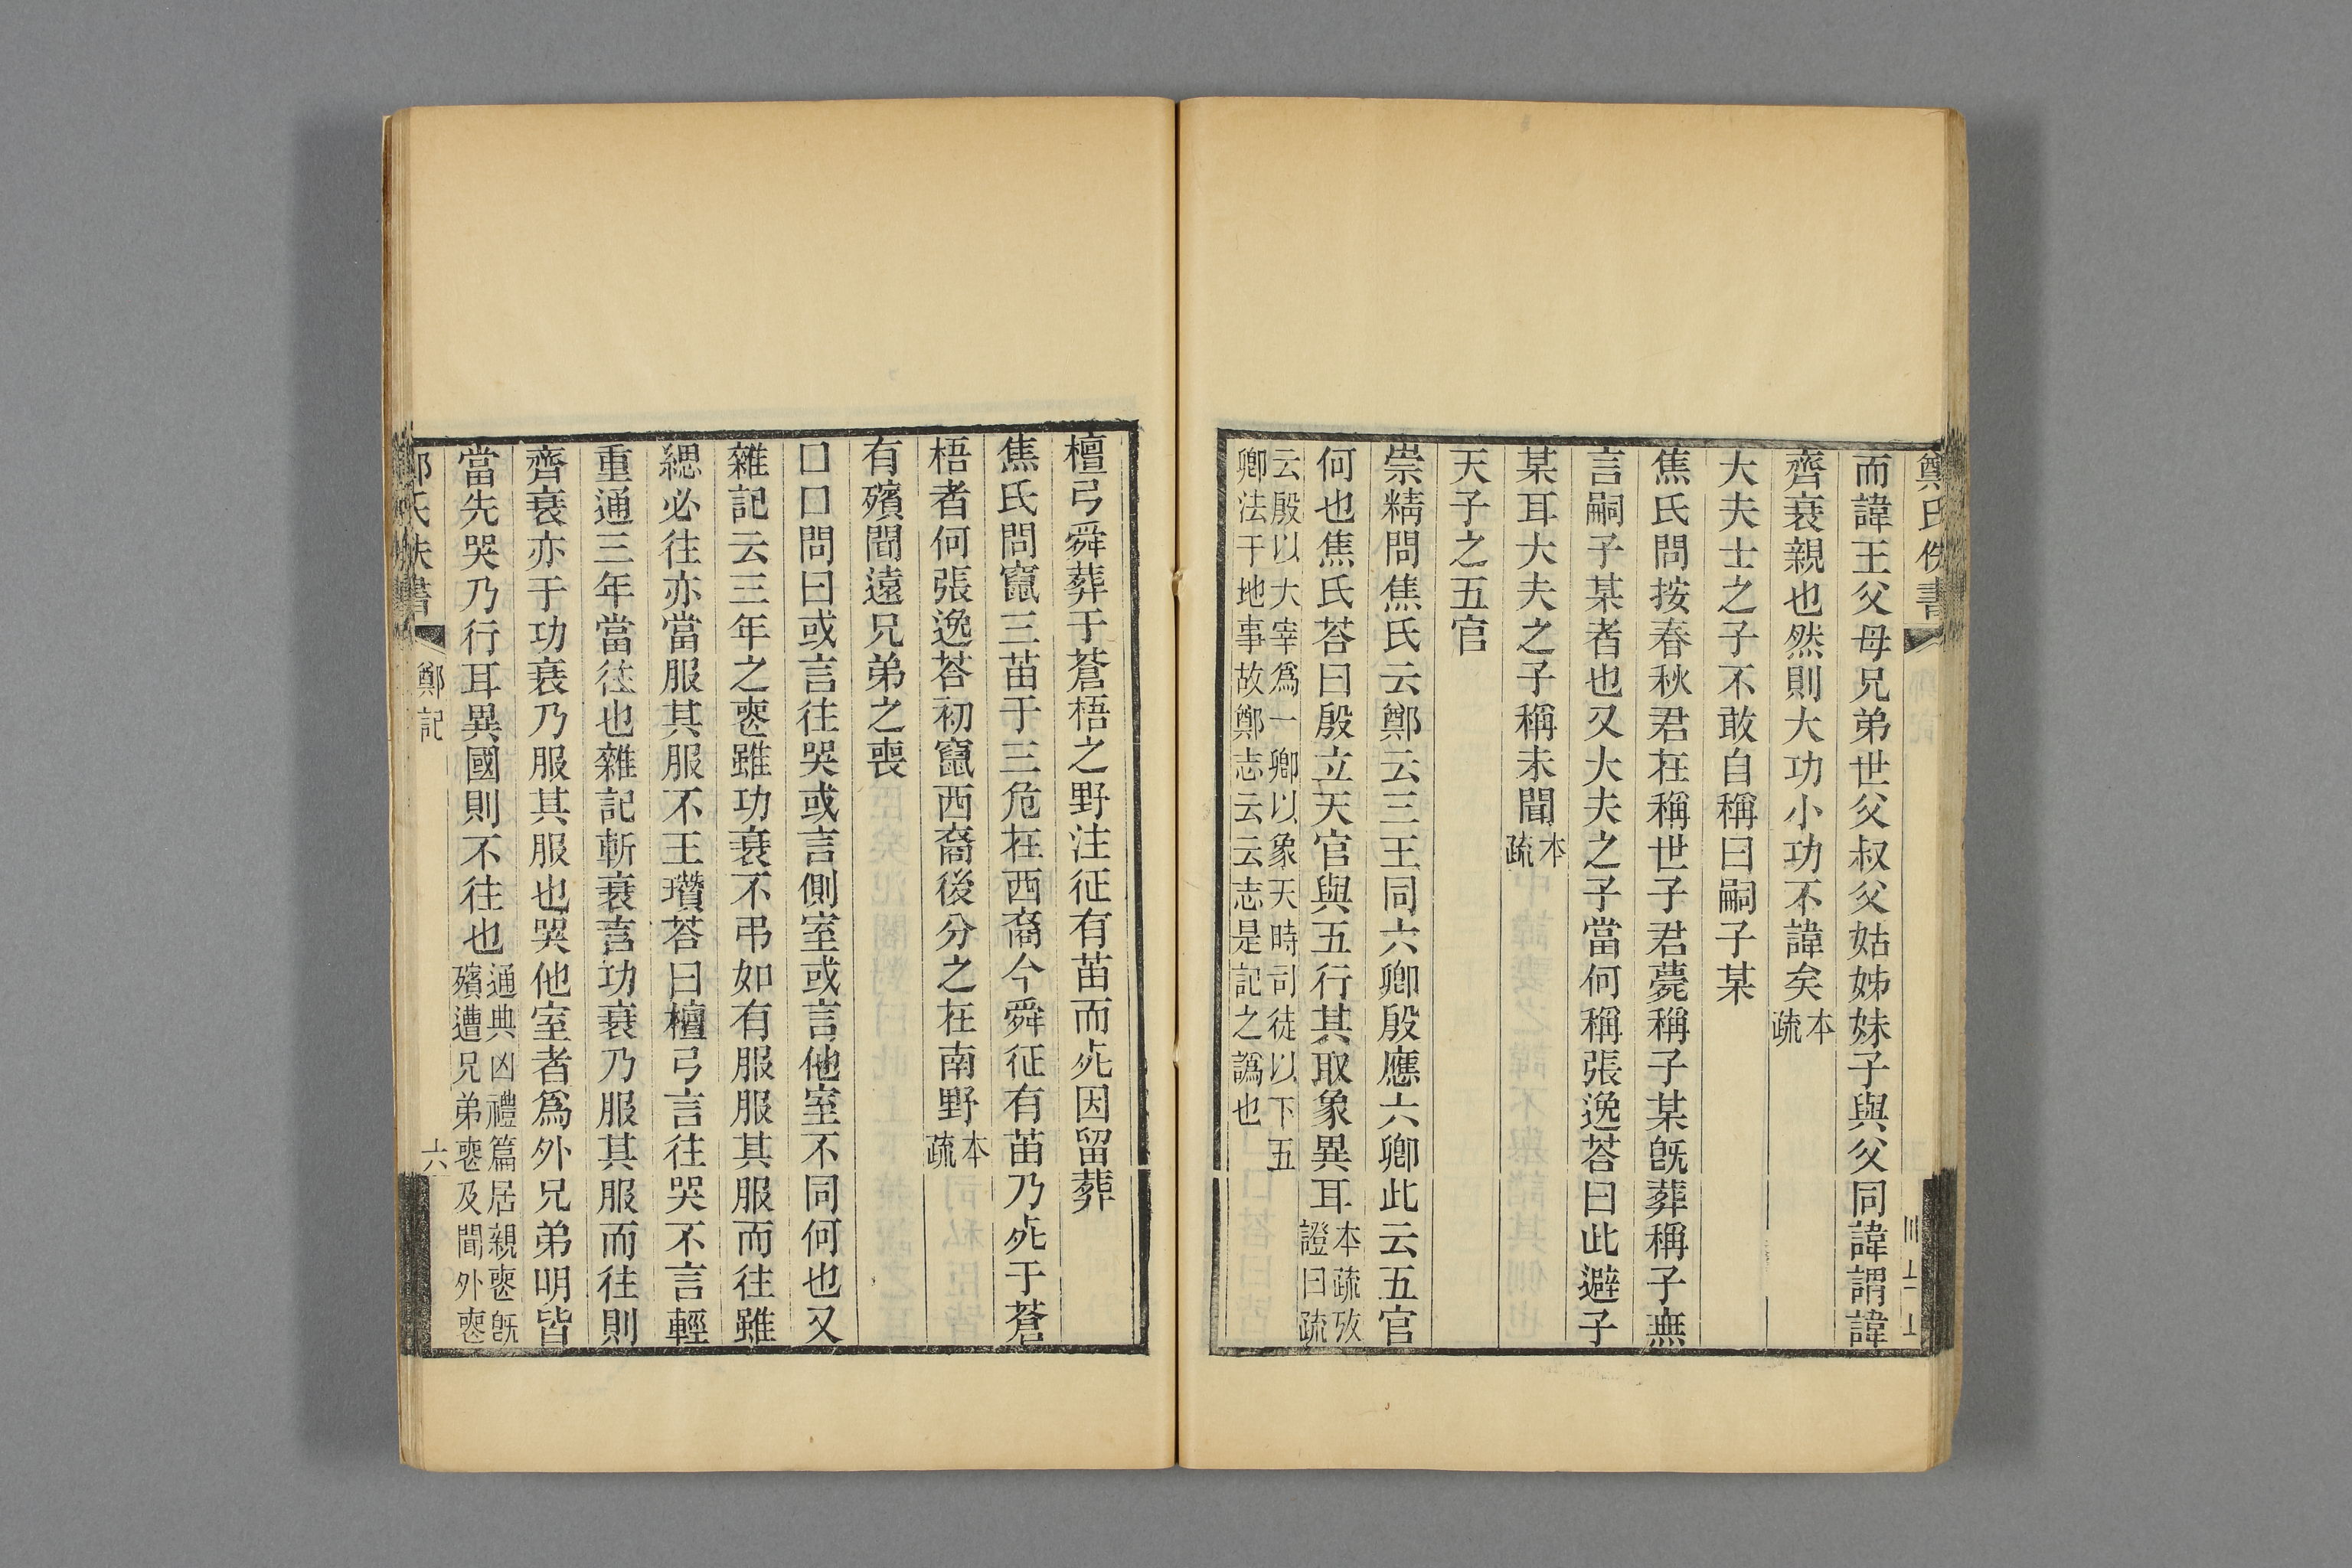 鄭氏佚書
而諱王父母兄弟世父叔父姑姊妹子與父同諱謂諱
齊衰親也然則大功小功不諱矣本疏
大夫士之子不敢自稱曰嗣子某
焦氏問按春秋君在稱世子君薨稱子某旣葬稱子無
言嗣子某者也又大夫之子當何稱張逸荅曰此避子
某耳大夫之子稱未聞本疏
天子之五官
崇精問焦氏云鄭云三王同六卿殷應六卿此云五官
何也焦氏荅曰殷立天官與五行其取象異耳本疏攷證曰疏
云殷以大宰爲一卿以象天時司徒以下五
卿法于地事故鄭志云云志是記之譌也
檀弓舜葬于蒼梧之野注征有苗而死因留葬
焦氏問竄三苗于三危在西裔今舜征有苗乃死于蒼
梧者何張逸荅初竄西裔後分之在南野本疏
有殯聞遠兄弟之喪
囗囗問曰或言往哭或言側室或言他室不同何也又
雜記云三年之喪雖功衰不弔如有服服其服而往雖
緦必往亦當服其服不王瓚荅曰檀弓言往哭不言輕
重通三年當往也雜記斬衰言功衰乃服其服而往則
齊衰亦于功衰乃服其服也哭他室者爲外兄弟明皆
當先哭乃行耳異國則不往也通典凶禮篇居親喪旣
殯遭兄弟喪及聞外喪
鄭氏佚書
鄭記
六